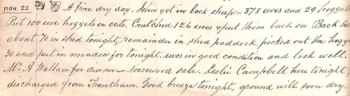 Nov 22 A fine dry day. Jim got in back shap - 378 ewes and 29 hoggets
Put 100 ewe hoggets on sale. Crutched 126 ewes & put them back on Back
about 70 in shed tonight, remainder in shed paddock, picked out the
30 and put in meadow for tonight. Ewes in good condition and look well.
Mr A Wallace for dinner - sale. Leslie Campbell here tonight,
discharged from Trentham. Good breeze tonight, ground will soon dry.